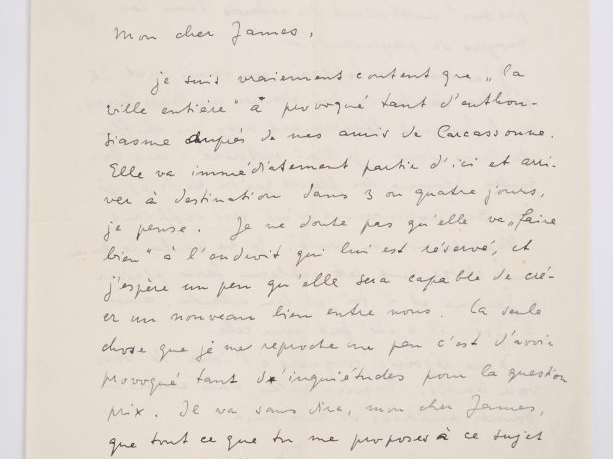 Mon cher James,
je suis vraiement content que „la
ville entière" à provoqué tant d'enthou-
siasme auprès de mes amis de Carcassonne.
Elle va immédiatement partir d'ici et arri-
ver à destination dans 3 ou quatre jours,
je pense. Je ne doute pas qu'elle va „faire
bien" à l'endroit qui lui est réservé, et
j'espère un peu qu'elle sera capable de cré-
er un nouveau lien entre nous. La seule
chose que je me reproche un peu c'est d'avoir
provoqué tant d'inquiétudes pour la question
prix. Il va sans dire, mon cher James,
que tout ce que tu me proposes à ce sujet